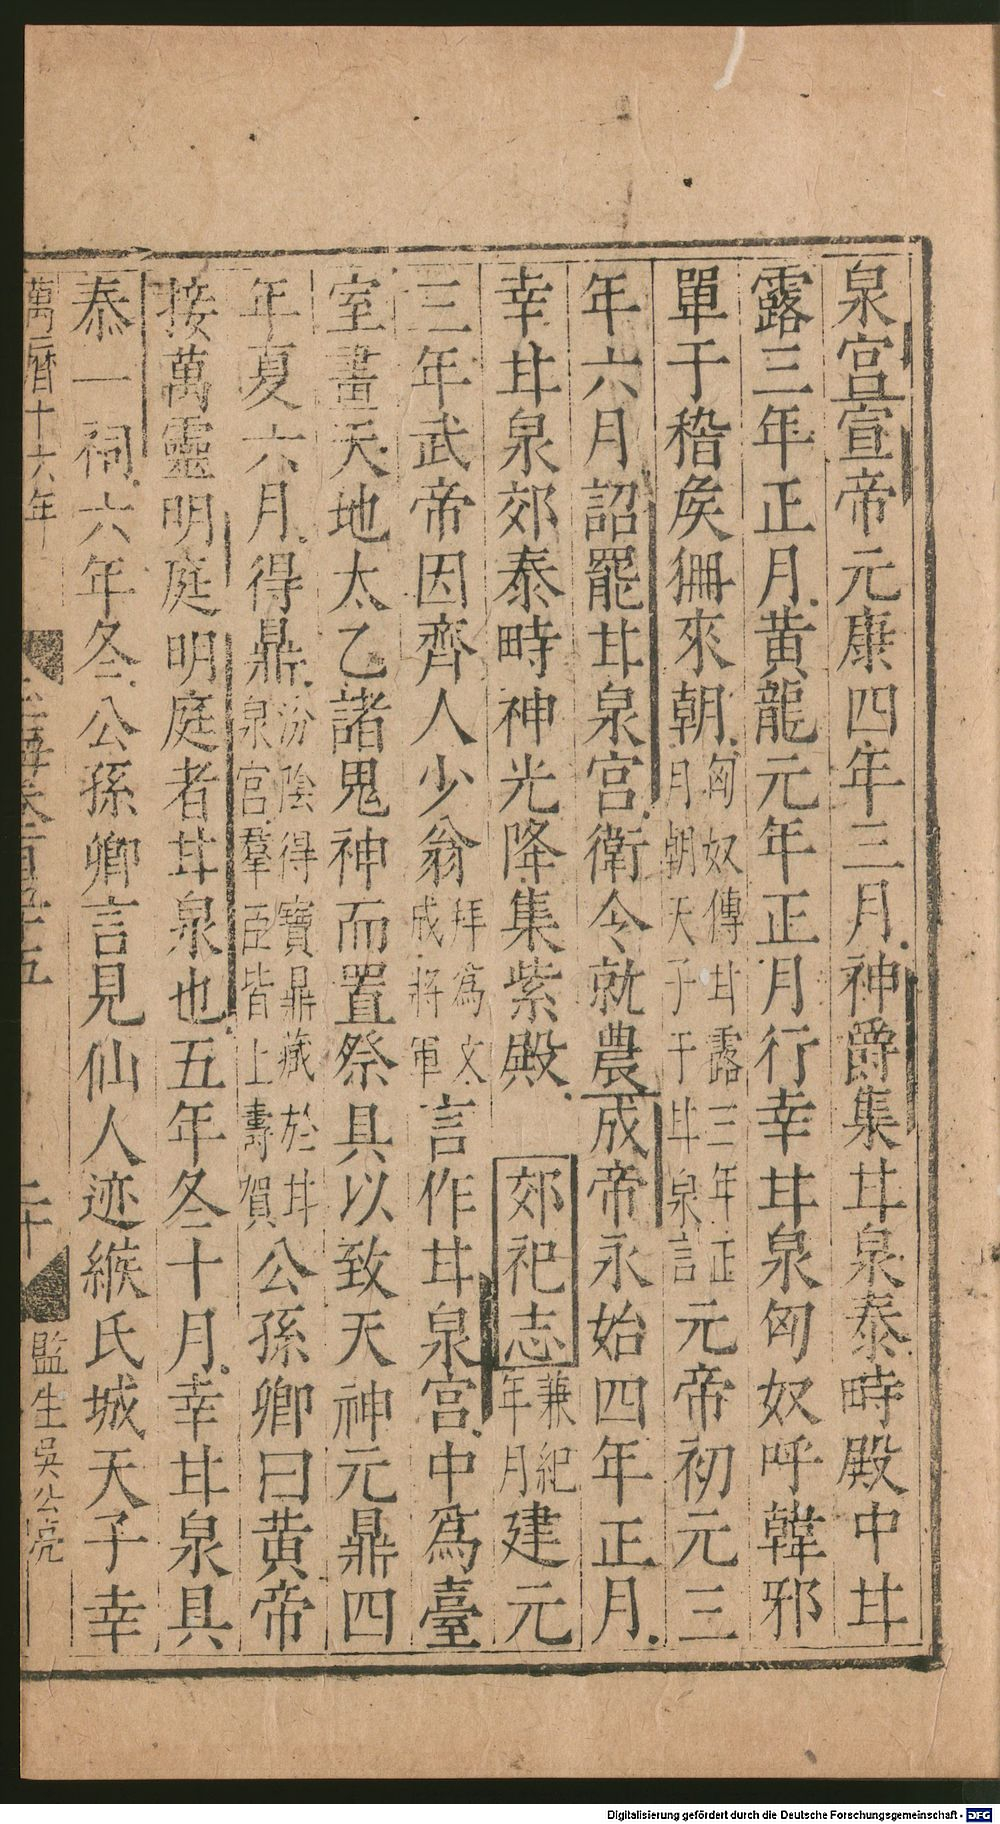 泉宫宣帝元康四年三月神爵集甘泉泰畤殿中甘
露三年正月黄龍元年正月行幸甘泉匈奴呼韓邪
單于稽矦狦來朝匈奴傳甘露三年正月朝天子于甘泉言元帝初元三
年六月詔罷甘泉宫衛令就農成帝永始四年正月
幸甘泉郊泰畤神光降集紫殿郊祀志兼紀年月建元
三年武帝因齊人少翁拜爲文成將軍言作甘泉宫中爲臺
室畫天地太乙諸鬼神而置祭具以致天神元鼎四
年夏六月得鼎汾陰得寶鼎藏於甘泉宫羣臣皆上壽賀公孫卿曰黄帝
接萬靈明庭明庭者甘泉也五年冬十月幸甘泉具
泰一祠六年冬公孫卿言見仙人迹緱氏城天子幸
萬曆十六年
玉海卷百五十五
二十
監生吳公亮
Digitalisierung gefördert durch die Deutsche Forschungsgemeinschaft - DFG